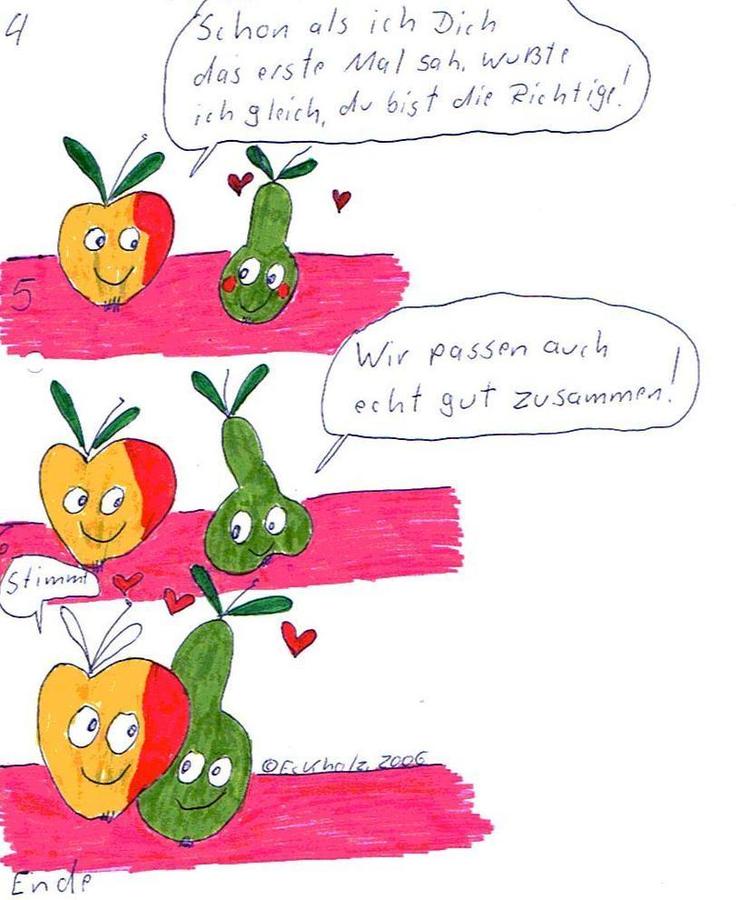 4
Schon als ich Dich
das erste Mal sah, wußte
ich gleich, du bist die Richtige!
5
Wir passen auch
echt gut zusammen!
6
Stimmt
©Eckholz 2006
Ende